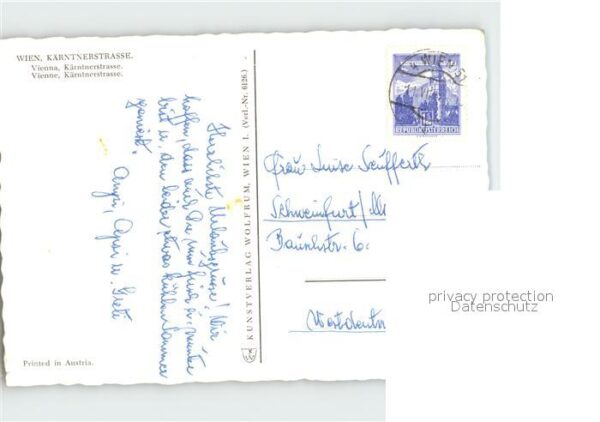 WIEN, KÄRNTNERSTRASSE.
Vienna, Kärntnerstrasse.
Vienne, Kärntnerstrasse.
Herzlichste Urlaubsgrüsse! Wir
hoffen, dass auch Du uns
bist u. den leider etwas kühlen Sommer
geniesst.
u. Greti
Printed in Austria.
KUNSTVERLAG WOLFRUM, WIEN I. (Verl.-Nr. 0126.)
WIEN
REPUBLIK ÖSTERREICH
Frau Luise Seufferth
Schweinfurt/M
6.
Westdeutsc
privacy protection
Datenschutz